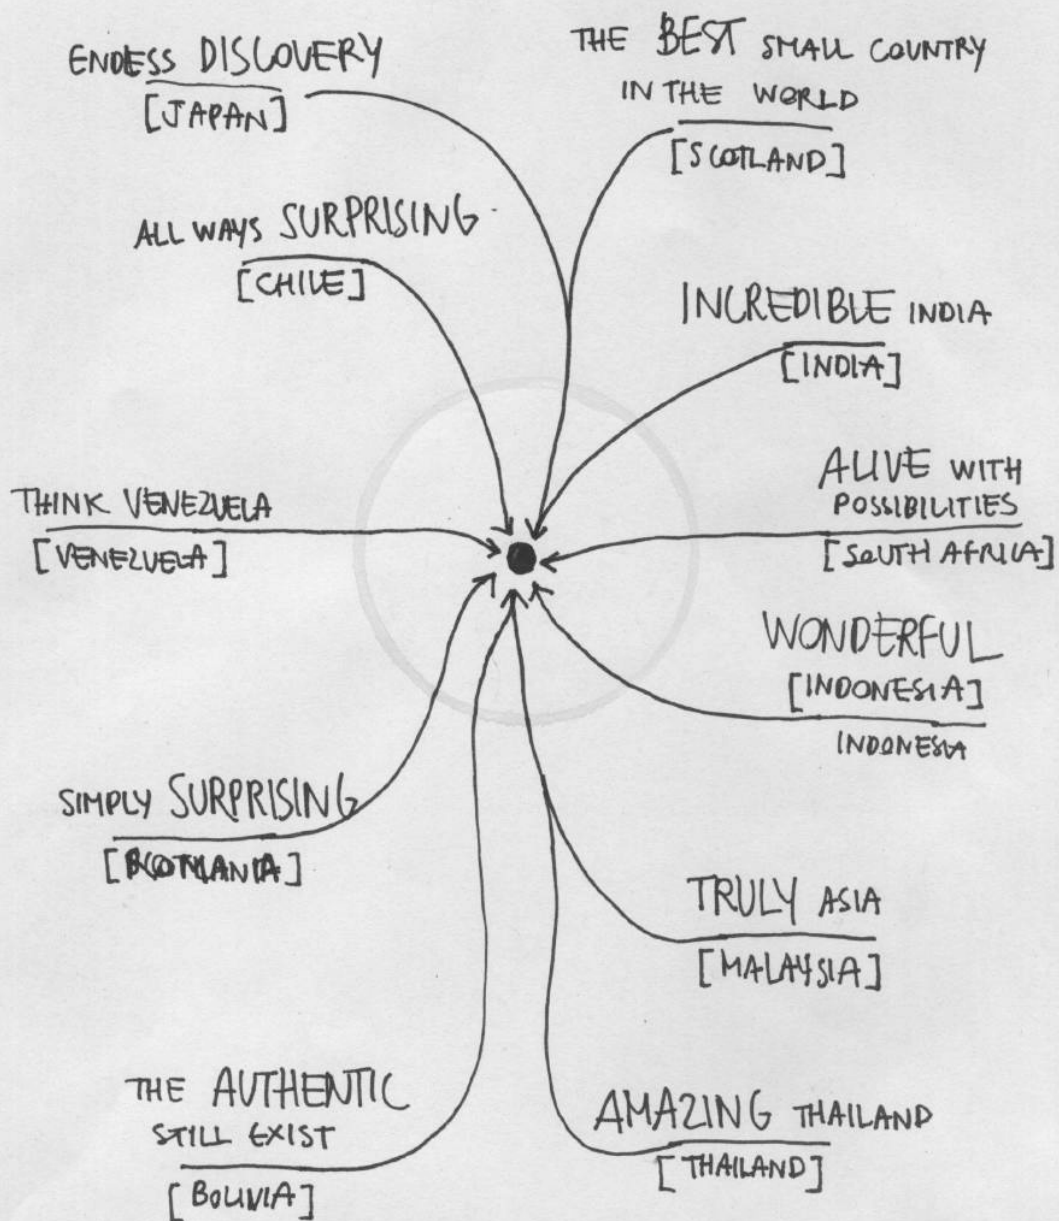 ENDESS DISCOVERY
[JAPAN]
THE BEST SMALL COUNTRY
IN THE WORLD
[SCOTLAND]
ALL WAYS SURPRISING
[CHILE]
INCREDIBLE INDIA
[INDIA]
THINK VENEZUELA
[VENEZUELA]
ALIVE WITH
POSSIBILITIES
[SOUTH AFRICA]
WONDERFUL
[INDONESIA]
INDONESIA
SIMPLY SURPRISING
TRULY ASIA
[MALAYSIA]
THE AUTHENTIC
STILL EXIST
[BOLIVIA]
AMAZING THAILAND
[THAILAND]